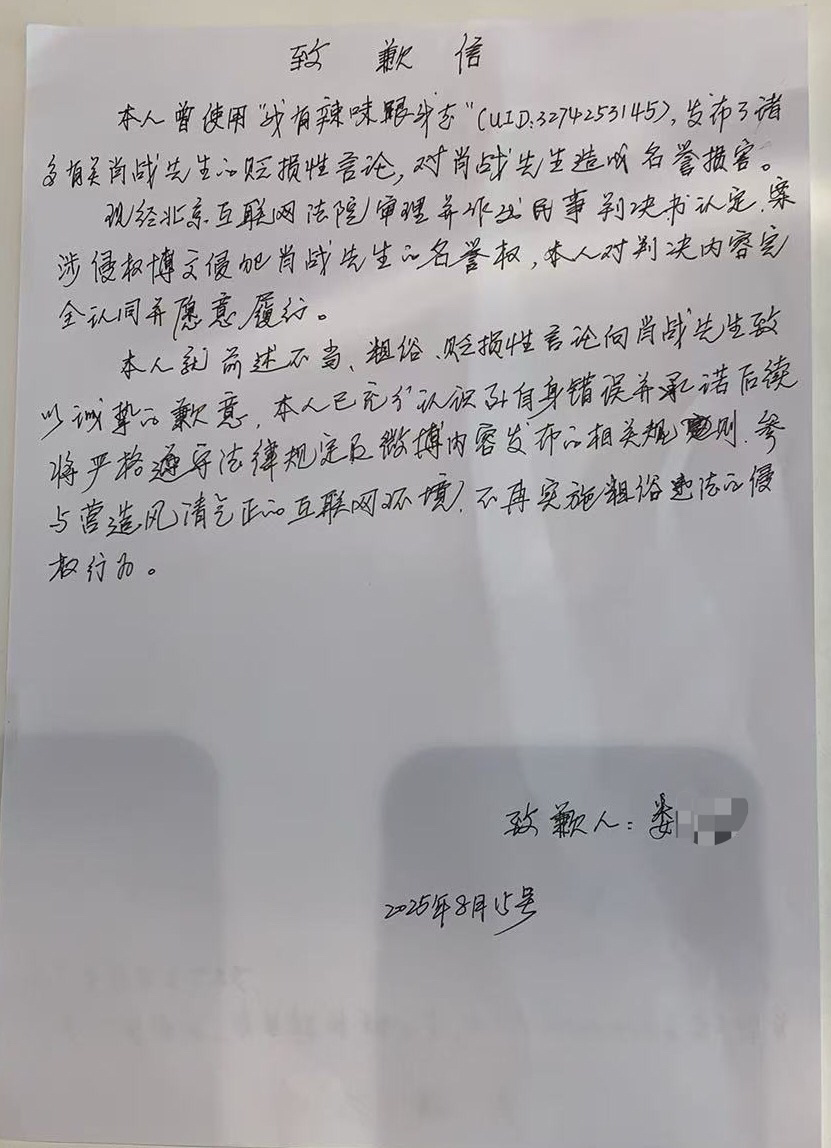 致歉信
本人曾使用“我有辣味跟我走”(UID:3274253145),发布了诸
多有关肖战先生的贬损性言论,对肖战先生造成名誉损害。
现经北京互联网法院审理并作出民事判决书认定,案
涉侵权博文侵犯肖战先生的名誉权,本人对判决内容完
全认同并愿意履行。
本人就前述不当、粗俗、贬损性言论向肖战先生致
以诚挚的歉意,本人已充分认识到自身错误并承诺后续
将严格遵守法律规定及微博内容发布的相关规则,参
与营造风清气正的互联网环境,不再实施粗俗违法的侵
权行为。
致歉人:娄
2025年8月15号